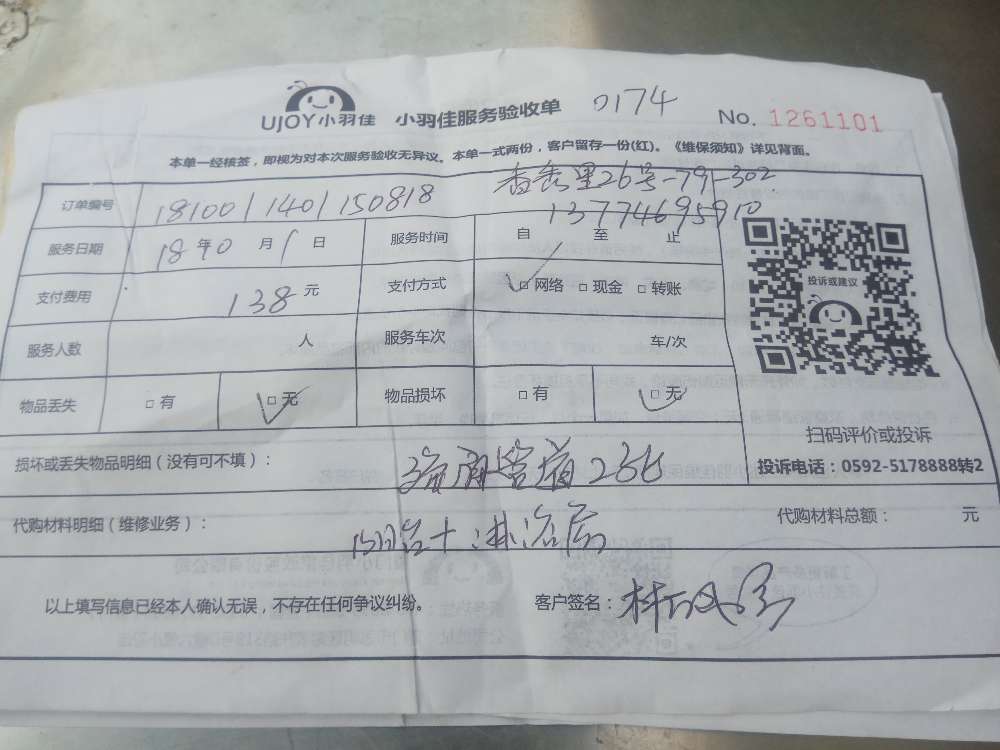 UJOY小羽佳 小羽佳服务验收单 0174 No. 1261101
本单一经核签，即视为对本次服务验收无异议。本单一式两份，客户留存一份(红)。《维保须知》详见背面。
香秀里26号-79-302
订单编号 181001140150818 13774695910
服务日期 18年10月1日 服务时间 自 至 止
支付费用 138元 支付方式 □网络 □现金 □转账
投诉或建议
服务人数 人 服务车次 车/次
物品丢失 □有 □无 物品损坏 □有 □无
扫码评价或投诉
损坏或丢失物品明细（没有可不填）： 疏通管道2个 投诉电话：0592-5178888转2
代购材料明细（维修业务）： 阳台+淋浴房 代购材料总额： 元
以上填写信息已经本人确认无误，不存在任何争议纠纷。 客户签名：